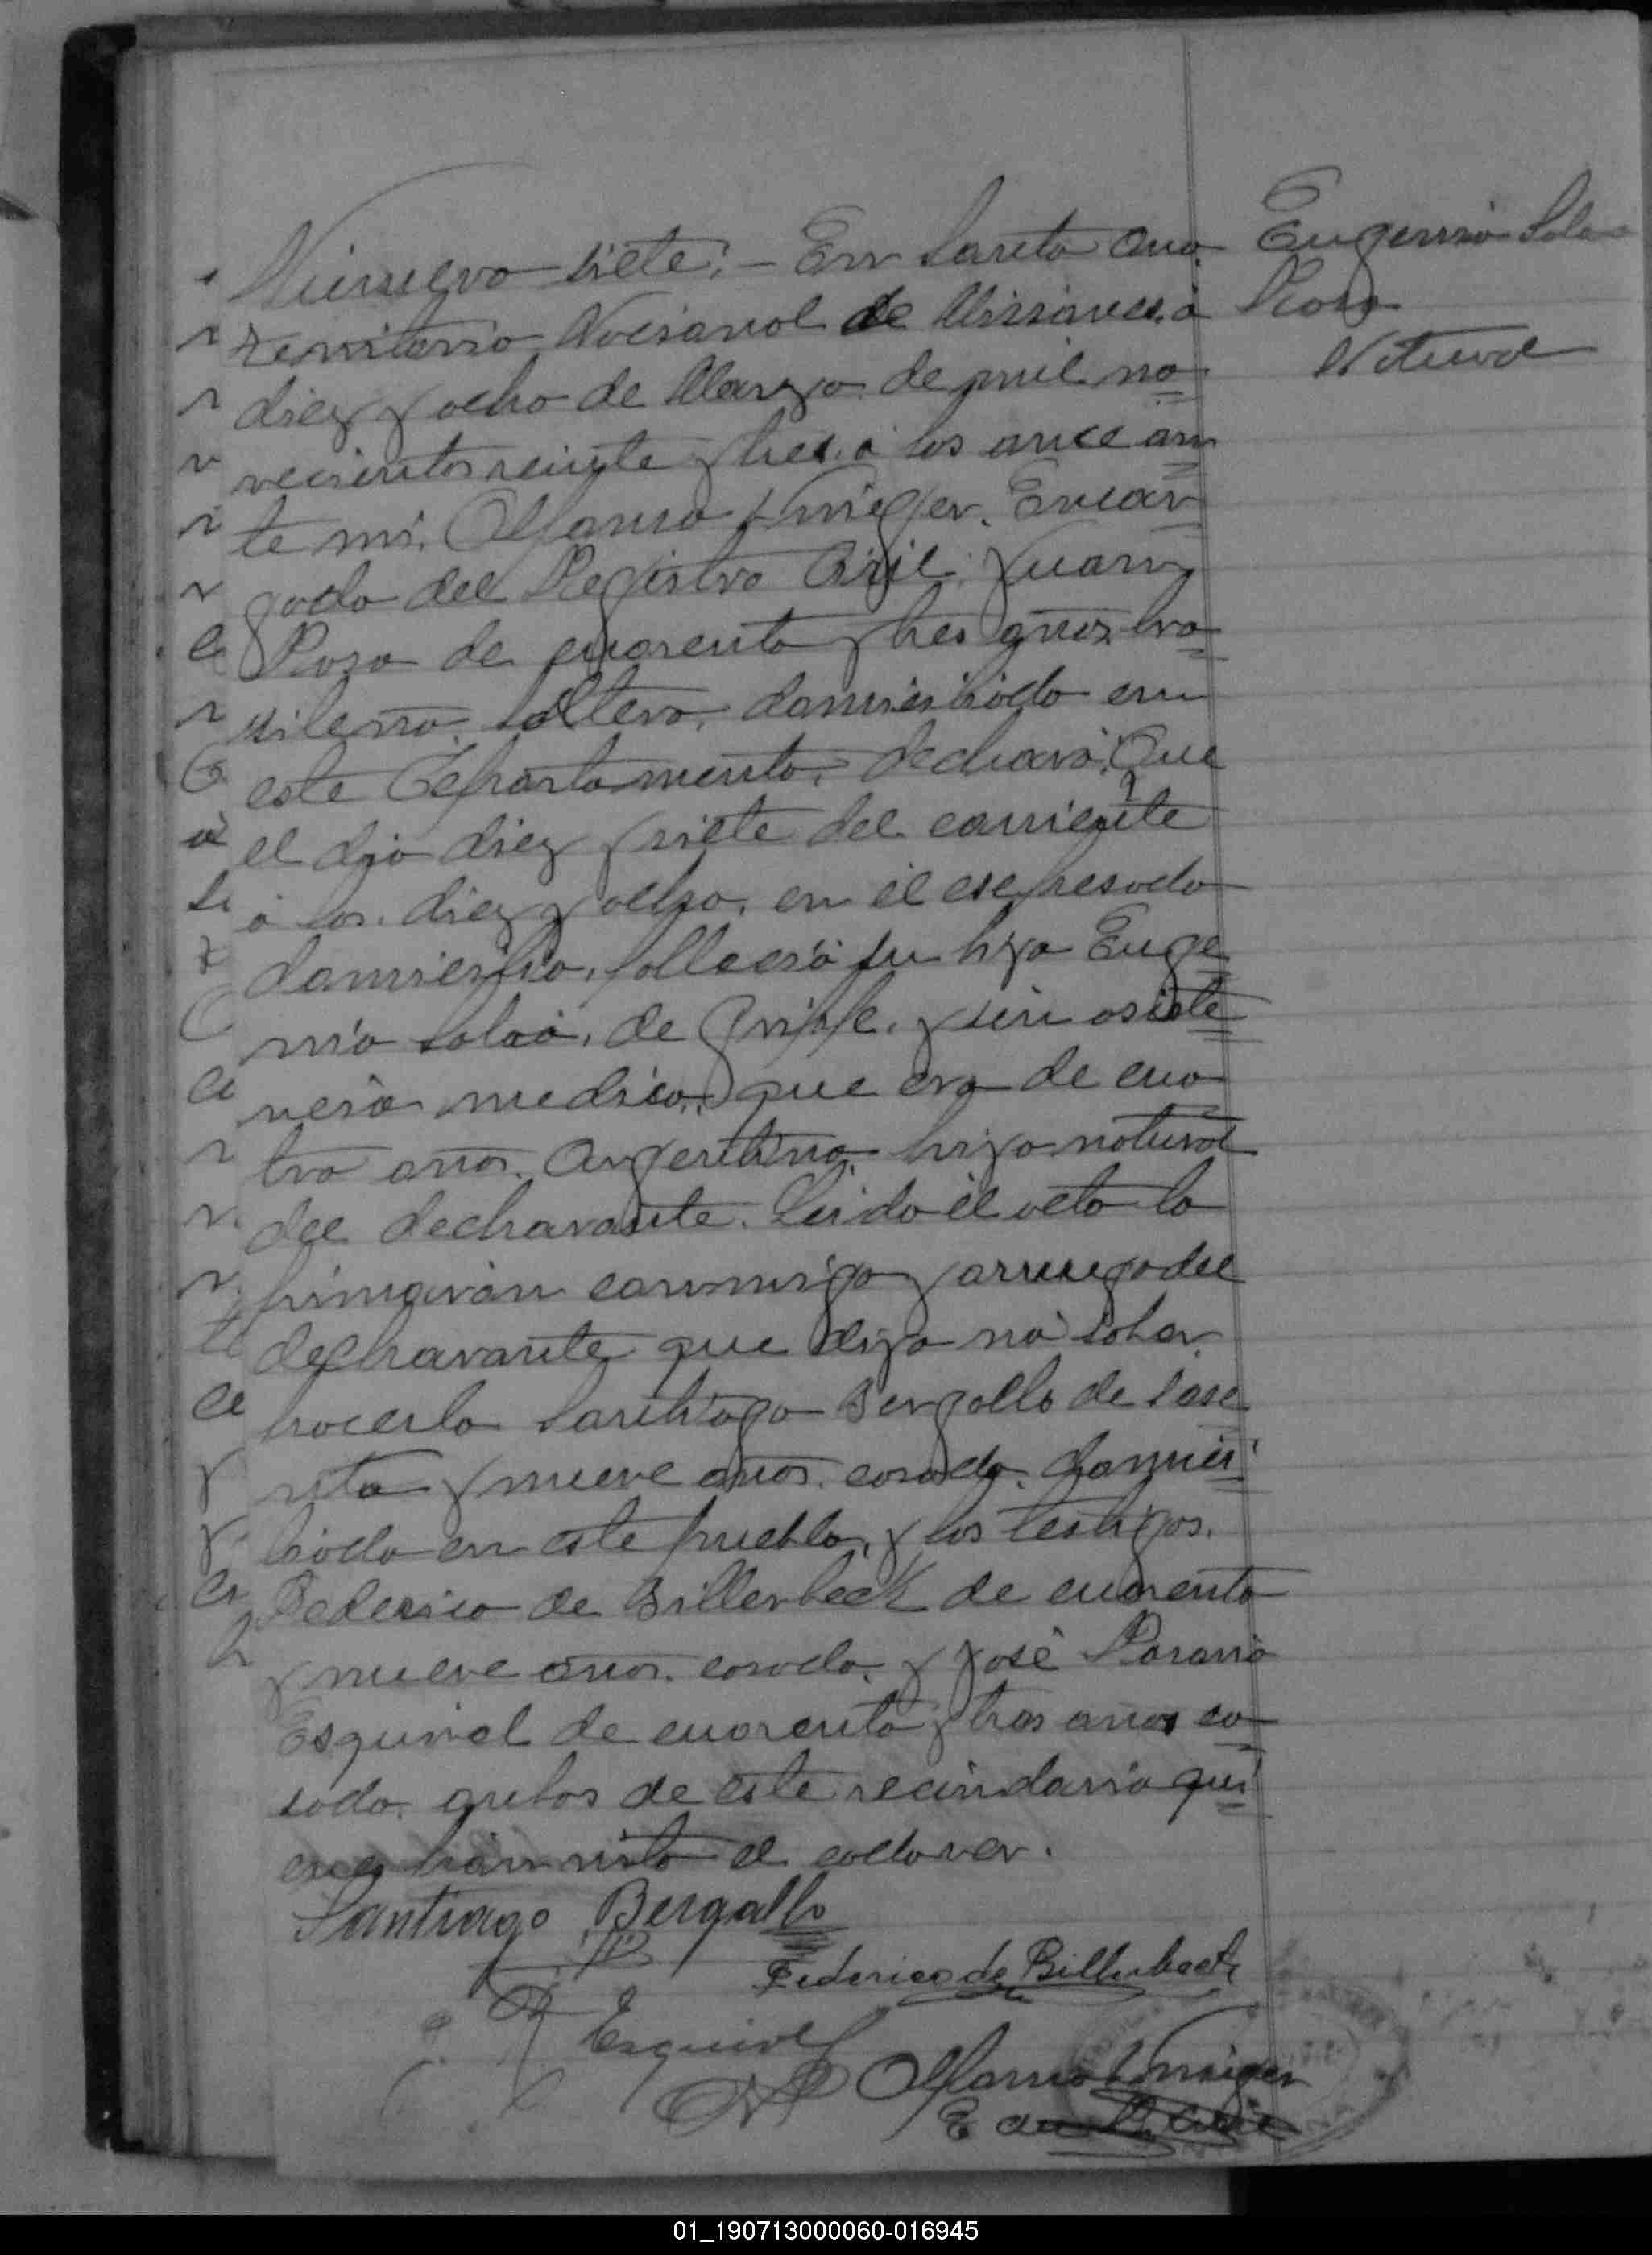 Numero siete.- En Santa Ana
Eugenia Sola
Territorio Nacional de Misiones, á
Rosa
Natural
diez y ocho de Marzo de mil no
vecientos veinte y tres á las once an
te mi, Alfonso Encar
gado del Registro Civil: Juan
Rosa de cuarenta y tres años, bra
silero, soltero, domiciliado en
este Departamento, declaró: Que
el dia diez y siete del corriente
á las diez y ocho, en el expresado
domicilio, falleció su hija Euge
nia de grippe, y sin asiste
ncia medica, que era de cua
tro años, Argentina, hija natural
del declarante. Leido el acta la
firmarón conmigo y a ruego del
declarante que dijo no saber
hacerlo Santiago Bergallo de sese
nta y nueve años, casado, domici
liado en este pueblo, y los testigos.
Federico de Billerbeck de cuarenta
y nueve años, casado, y José
Esquivel de cuarenta y tres años ca
sado, ambos de este vecindario qui
enes han visto el cadaver.
Santiago Bergallo
Federico de Billerbeck
Esquivel
Alfonso
01_190713000060-016945